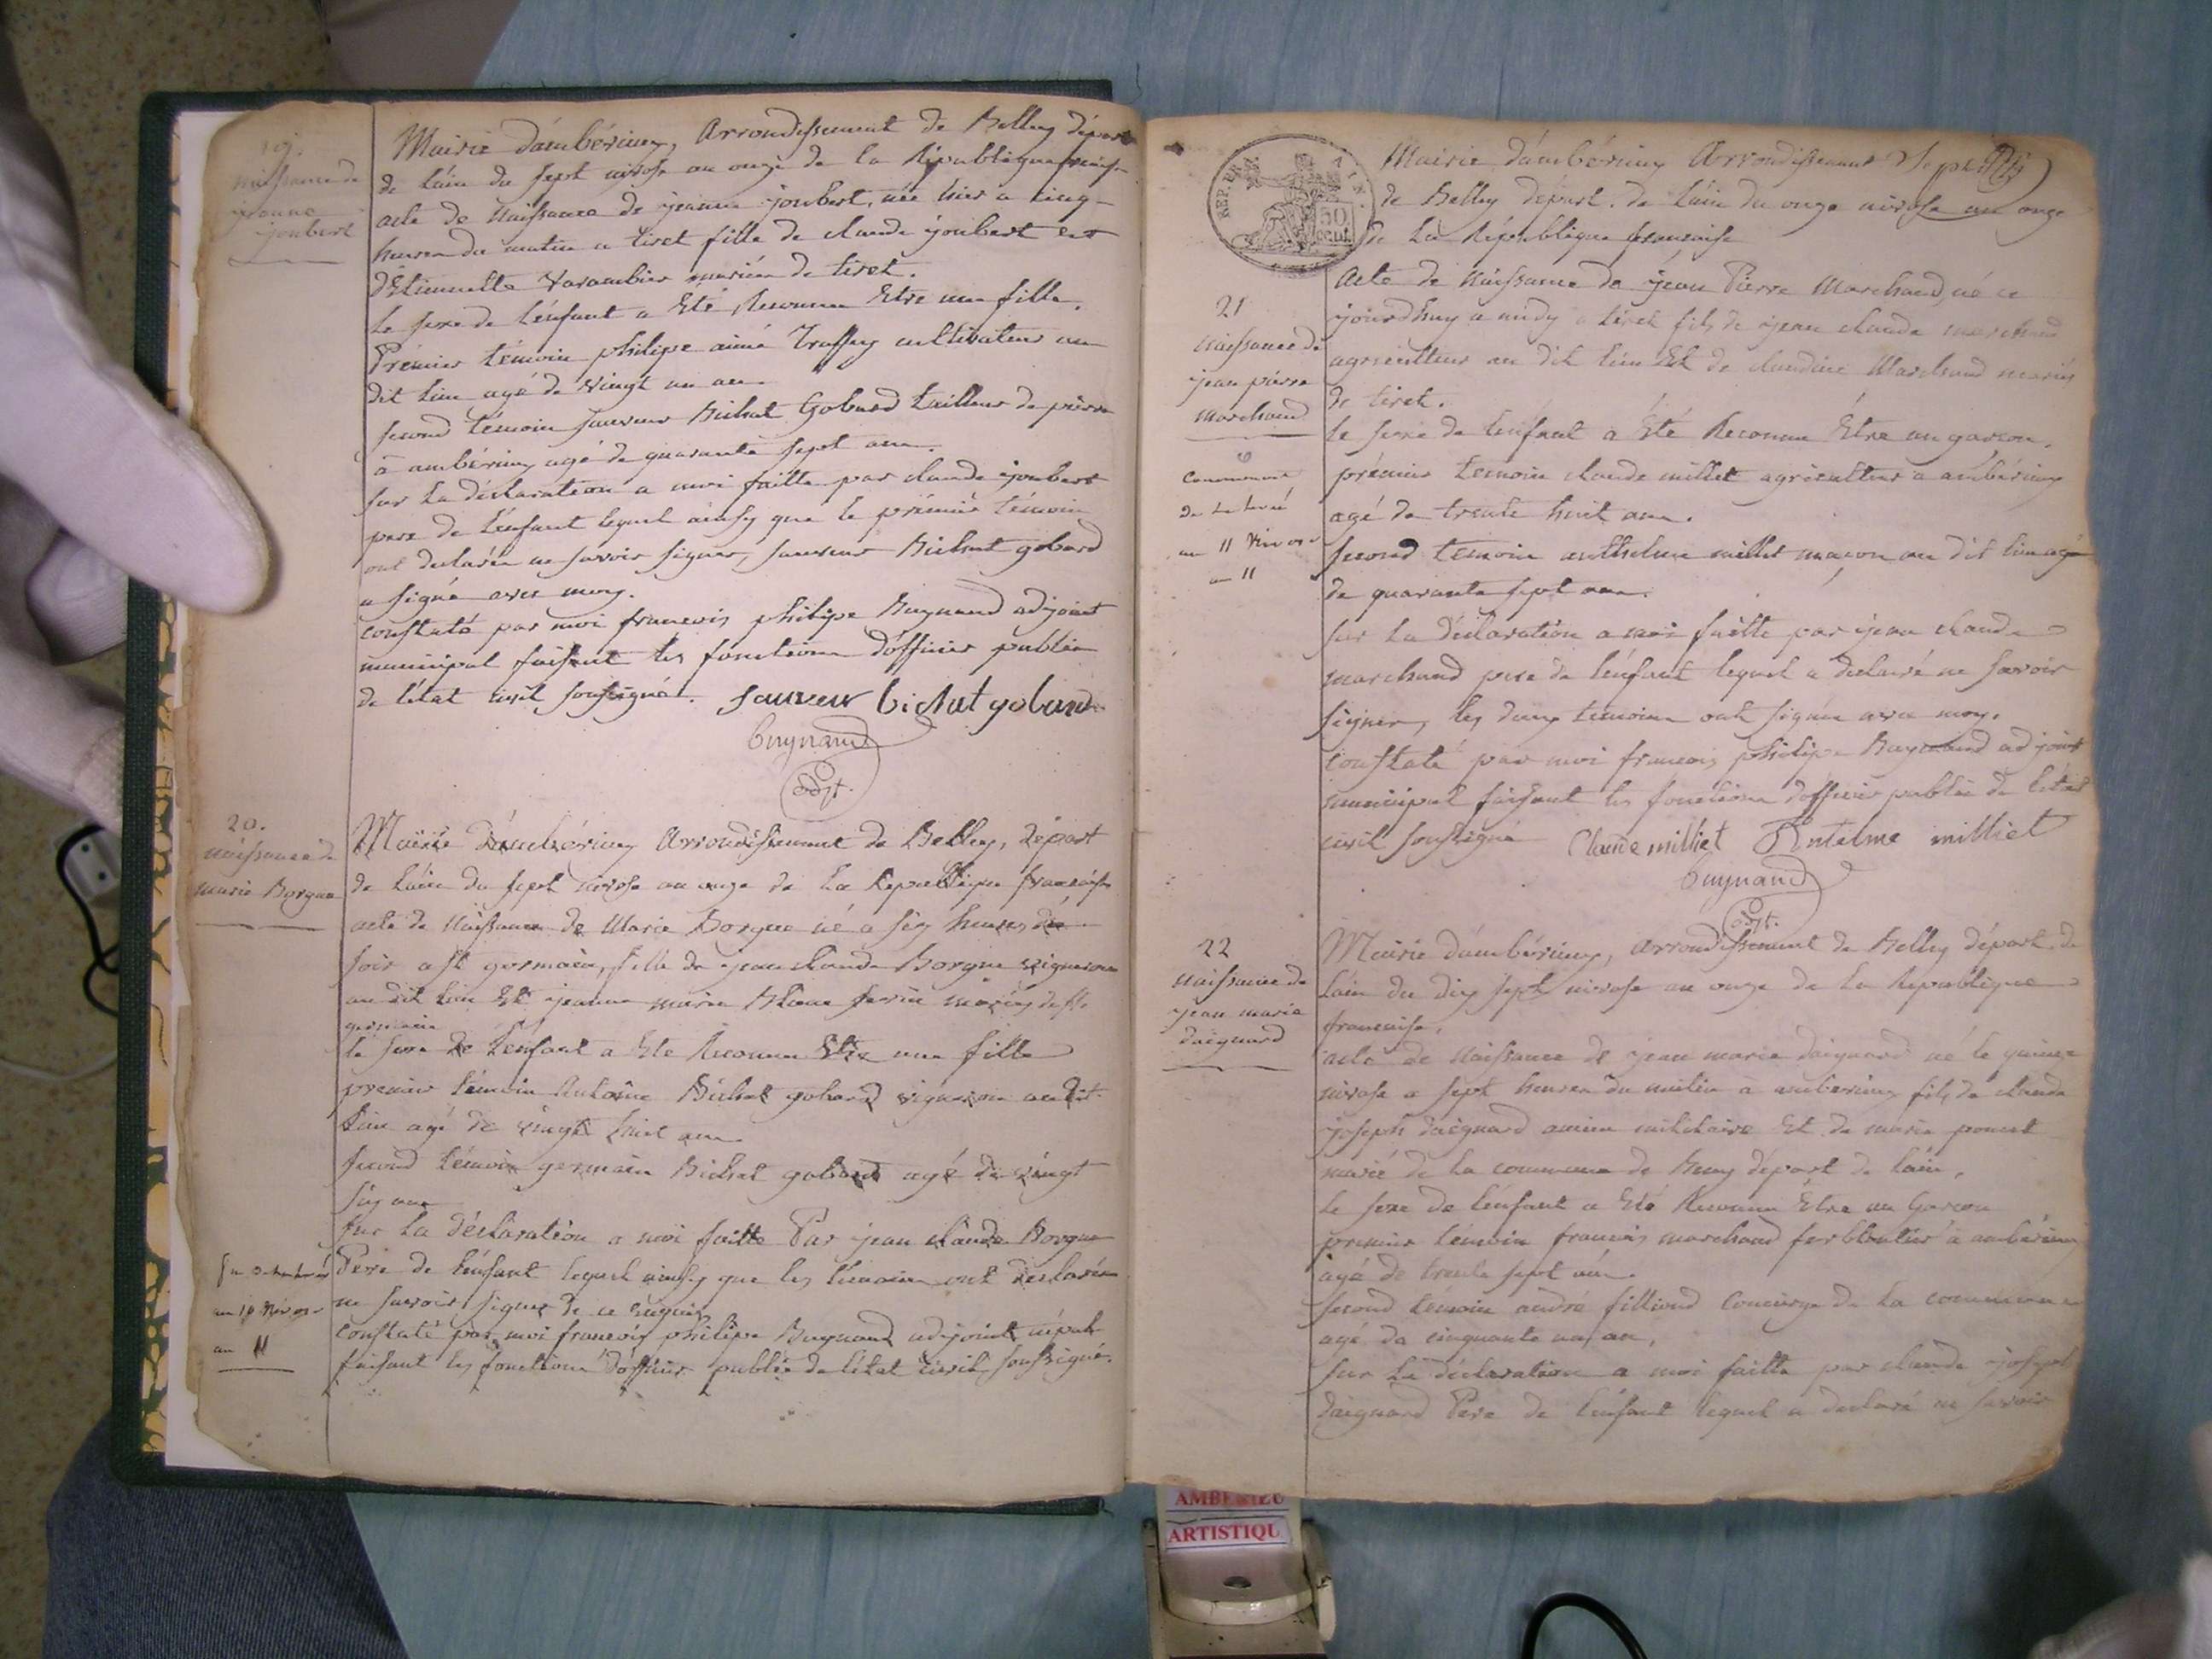 19.
naissance de
jeanne
joubert
Mairie d'ambérieux, Arrondissement de Belley départ
de l'ain du sept nivose an onze de la République française
acte de naissance de jeanne joubert, née hier a cinq
heures du matin a tiret fille de claude joubert et
d'Etiennette Varambier mariés de tiret.
Le sexe de l'enfant a Eté Reconnu Etre une fille.
Prémier témoin philipe aimé Truffey cultivateur au
dit lieu agé de vingt un an.
second témoin sauveur Bichat Gobard tailleur de pierre
à ambérieux agé de quarante sept ans.
sur la déclaration a moi faitte par claude joubert
pere de l'enfant lequel ainsy que le prémié témoin
ont declarés ne savoir signer, sauveur Bichat gobard
a signé avec moy.
constaté par moi francois philipe Buynand adjoint
municipal faisant les fonctions d'officier public
de l'état civil soussigné. Sauveur bichat gobard
buynand
adjt.
20.
naissance de
marie Borgue
Mairie d'ambérieux Arrondissement de Belley, départ
de l'ain du sept nivose an onze de la République française
acte de naissance de Marie Borgue né a six heures du
soir a st germain, fille de jean claude Borgue vigneron
au dit lieu Et jeanne marie mariés de st.
germain
le sexe de l'enfant a Ete Reconnu Etre une fille
premier témoin Antoine Bichat gobard vigneron au dit.
lieu agé de vingt huit ans.
second témoin germain Bichat gobard agé de vingt
six ans
sur la déclaration a moi faitte Par jean claude Borgue
Pere de l'enfant lequel ainsy que les témoins ont declarés
ne savoir signer de ce requis
constaté par moi francois philipe Buynand adjoint
faisant les fonctions d'officier public de l'état civil, soussigné.
an 10 Nivose
an 11
REP. FRA.
50
CENT.
Mairie d'ambérieux Arrondissement
de Belley départ. de l'ain du onze nivose an onze
de la République francaise
21
naissance de
jean pierre
marchand
Acte de naissance de jean Pierre Marchand, né ce
jourd'huy a midy a tiret fils de jean claude marchand
agriculteur au dit lieu Et de claudine Marchand mariés
de tiret.
le sexe de l'enfant a Eté Reconnu Etre un garcon.
prémier temoin claude millet agriculteur a ambérieux
agé de trente huit ans.
second temoin anthelme millet maçon au dit lieu agé
de quarante sept ans.
sur la déclaration a moi faitte par jean claude
marchand pere de l'enfant lequel a declaré ne savoir
signer, les deux temoins ont signés avec moy.
constaté par moi francois philipe Buynand adjoint
municipal faisant les fonctions d'officier public de l'état
civil soussigné Claude milliet Antelme milliet
buynand
adjt.
an 11 Nivose
an 11
22
naissance de
jean marie
daignard
Mairie d'ambérieux, arrondissement de Belley départ. de
l'ain du dix sept nivose an onze de la République
francaise.
acte de naissance de jean marie daignard né le quinze
nivose a sept heures du matin à amberieux fils de claude
joseph daignard ancien militaire Et de marie poncet
mariés de la commune de Buny départ de l'ain.
le sexe de l'enfant a Eté Reconnu Etre un Garcon
premier témoin francois marchand ferblantier à ambérieux
agé de trente sept ans.
second témoin andré filliond concierge de la commune
agé de cinquante un an.
sur la déclaration a moi faitte par claude joseph
daignard Pere de l'enfant lequel a declaré ne savoir
ARTISTIQU